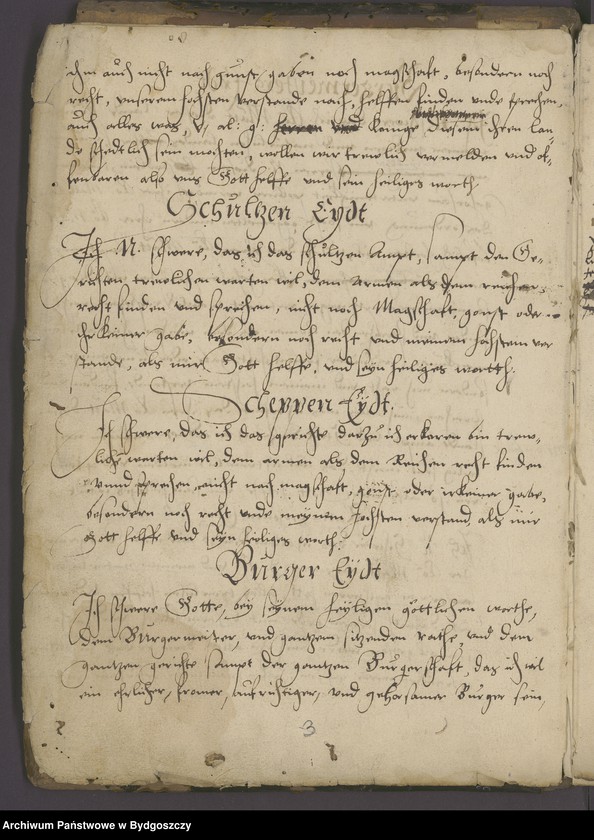 ihm auch nicht nach gunst gaben noch magschaft, besondern noch
recht, unserem hochsten verstande nach, helffen finden unde sprechen,
auch alles was, K. Konige diesen ihren lan
de schedtlich sein mochten, wollen wir trewlich vermelden und of-
fenbaren also uns Gott helffe und sein heiliges worth.
Schultzen Eydt
Ich N. schwere, das ich das schultzen Ampt, sampt den Ge-
richten, trewlichen warten wil, dem Armen als dem reichen,
recht finden und sprechen, nicht noch Magschaft, gonst oder
ihrkeiner gabe, besondern noch recht und meinem hochstem ver
stande, als mir Gott helffe, und seyn heiliges wortth.
Scheppen Eydt.
Ich schwere, das ich das gerichte dartzu ich erkoren bin trew-
lich warten wil, dem armen als dem Reichen recht finden
unnd sprechen, nicht nach magschaft, gunst oder irkeiner gabe,
besondern noch recht unde meynem hochsten verstand, als mir
Gott helffe und seyn heiliges worth.
Burger Eydt
Ich schwere Gotte, bey seynem heyligen gottlichen worthe,
dem Burgermeister, und gantzem sitzenden rathe, und dem
gantzen gerichte sampt der gantzen Burgerschaft, das ich wil
ein ehrlicher, fromer, aufrichtiger, und gehorsamer Burger sein,
3
Archiwum Państwowe w Bydgoszczy